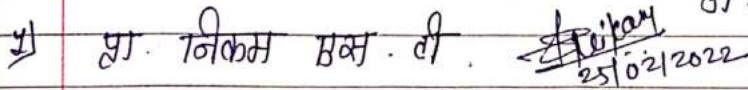 ५) प्रा. निकम एस. टी.
25/02/2022